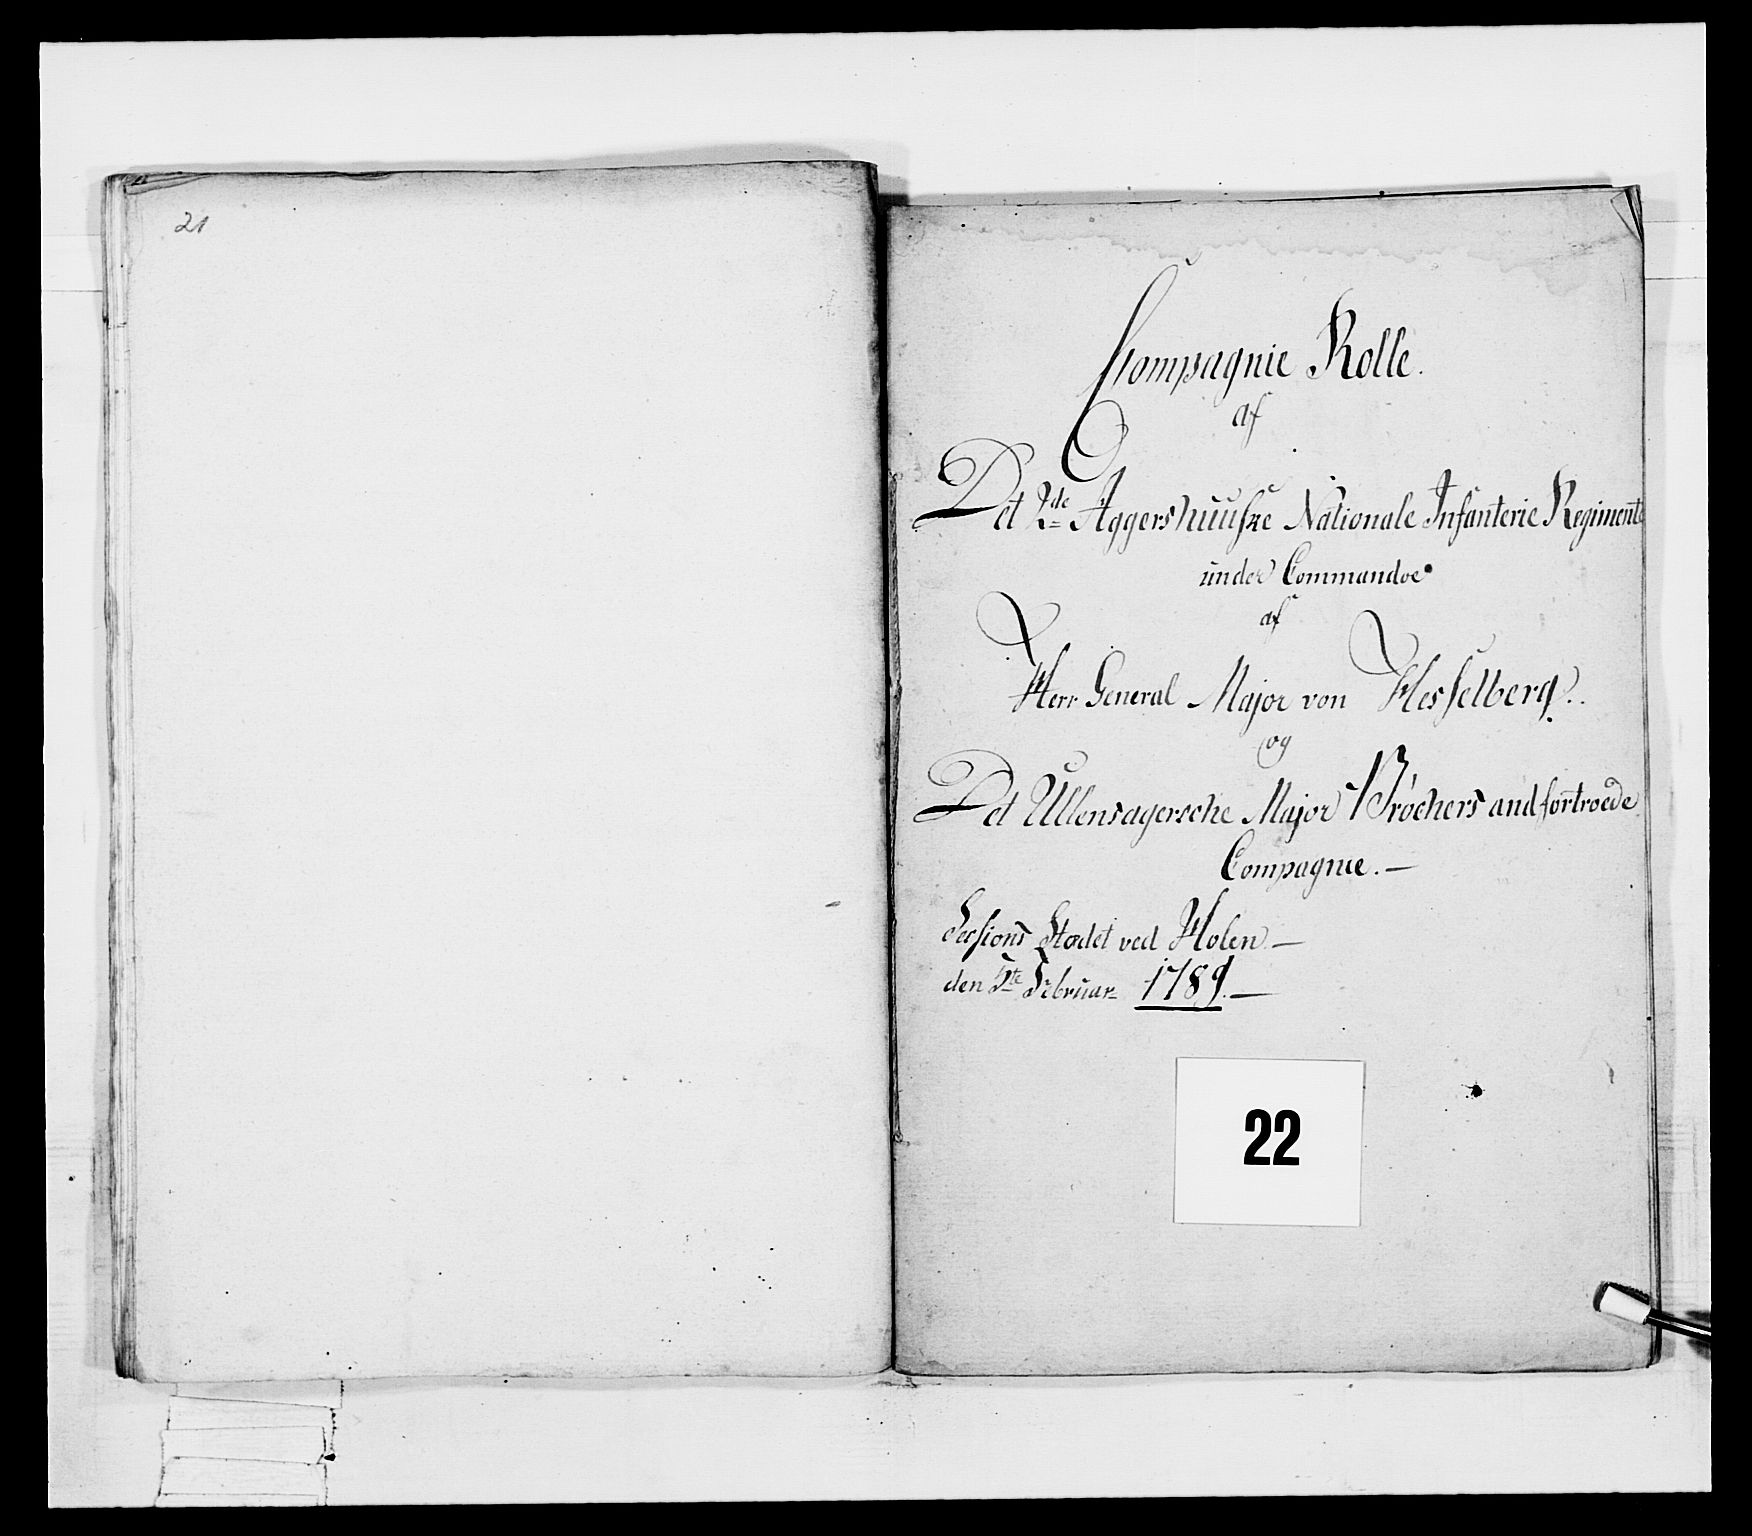 21
Compagnie Rolle.
af
Det 2de Aggershuuske Nationale Infanterie Regiment
under Commandoe
af
Herr General Major von Hesselberg.
og
Det Ullensagersche Major Bróchers andfortroede
Compagnie. —
Sessions Stædet ved Holen —
den 5te Februar 1789. —
22